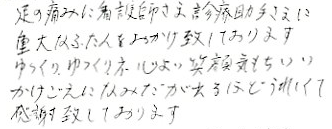 足の痛みに看護師さま診療助手さまに
重大なふたんをおかけ致しております
ゆっくりゆっくりネ 心よい笑顔気もちいい
かけごえになみだが出るほどうれしくて
感謝致しております